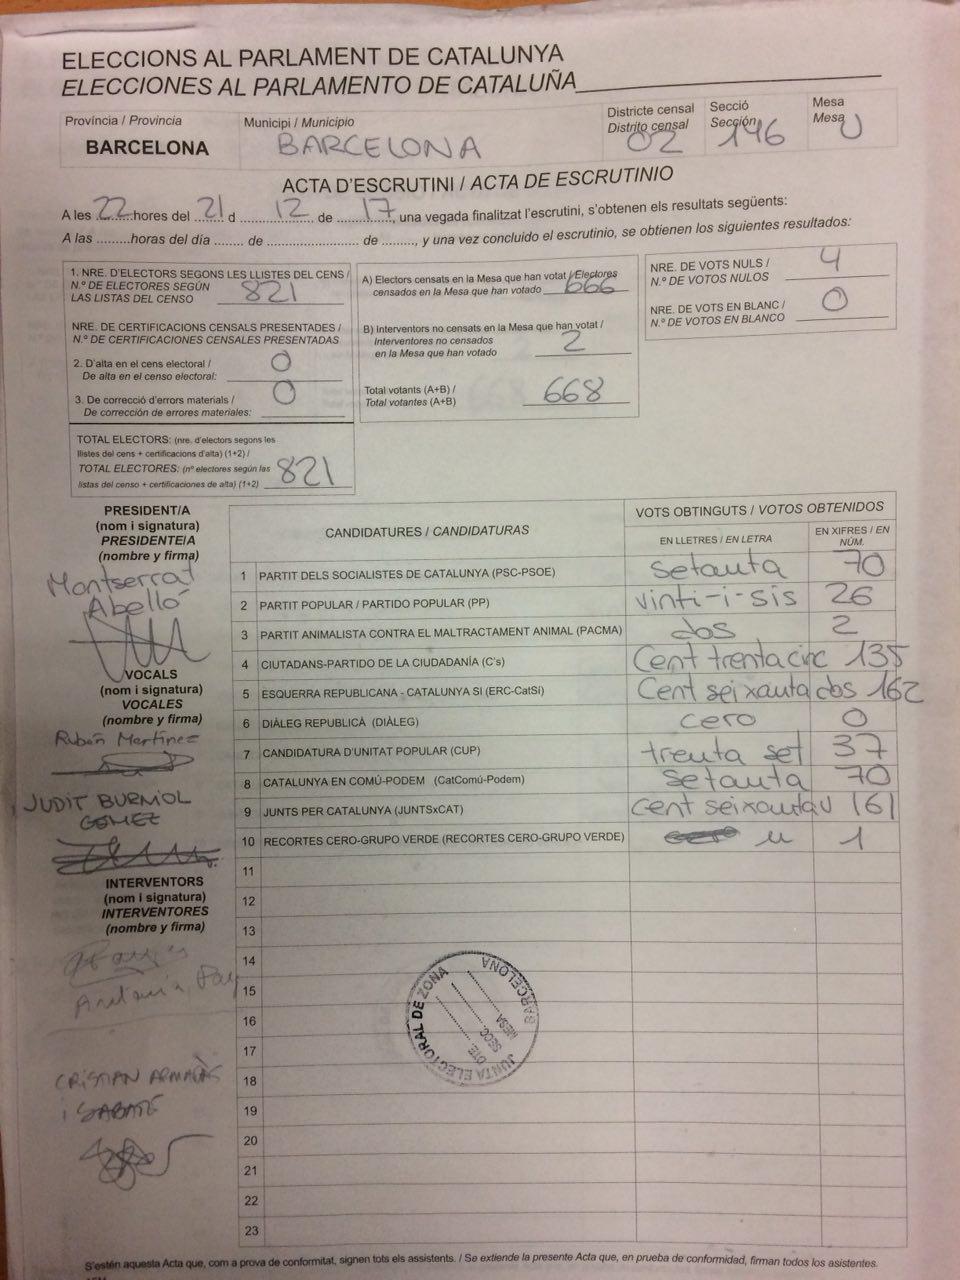 ELECCIONS AL PARLAMENT DE CATALUNYA
ELECCIONES AL PARLAMENTO DE CATALUÑA
Província / Provincia
BARCELONA
Municipi / Municipio
BARCELONA
Districte censal
Distrito censal
02
Secció
Sección
146
Mesa
Mesa
U
ACTA D'ESCRUTINI / ACTA DE ESCRUTINIO
A les 22 hores del 21 d 12 de 17, una vegada finalitzat l'escrutini, s'obtenen els resultats següents:
A las .........horas del día ........ de ...................... de ........, y una vez concluido el escrutinio, se obtienen los siguientes resultados:
1. NRE. D'ELECTORS SEGONS LES LLISTES DEL CENS /
N.º DE ELECTORES SEGÚN
LAS LISTAS DEL CENSO 821
NRE. DE CERTIFICACIONS CENSALS PRESENTADES /
N.º DE CERTIFICACIONES CENSALES PRESENTADAS
2. D'alta en el cens electoral /
De alta en el censo electoral: 0
3. De correcció d'errors materials /
De corrección de errores materiales: 0
TOTAL ELECTORS: (nre. d'electors segons les
llistes del cens + certificacions d'alta) (1+2) /
TOTAL ELECTORES: (nº electores según las
listas del censo + certificaciones de alta) (1+2) 821
A) Electors censats en la Mesa que han votat / Electores
censados en la Mesa que han votado 666
B) Interventors no censats en la Mesa que han votat /
Interventores no censados
en la Mesa que han votado 2
Total votants (A+B) /
Total votantes (A+B) 668
NRE. DE VOTS NULS /
N.º DE VOTOS NULOS 4
NRE. DE VOTS EN BLANC /
N.º DE VOTOS EN BLANCO 0
PRESIDENT/A
(nom i signatura)
PRESIDENTE/A
(nombre y firma)
Montserrat
Abelló
VOCALS
(nom i signatura)
VOCALES
(nombre y firma)
Rubén Martínez
JUDIT BURNIOL
GOMEZ
INTERVENTORS
(nom i signatura)
INTERVENTORES
(nombre y firma)
CRISTIAN ARMADÀS
i SABATÉ
CANDIDATURES / CANDIDATURAS
VOTS OBTINGUTS / VOTOS OBTENIDOS
EN LLETRES / EN LETRA
EN XIFRES / EN NÚM.
1 PARTIT DELS SOCIALISTES DE CATALUNYA (PSC-PSOE) setanta 70
2 PARTIT POPULAR / PARTIDO POPULAR (PP) vinti-i-sis 26
3 PARTIT ANIMALISTA CONTRA EL MALTRACTAMENT ANIMAL (PACMA) dos 2
4 CIUTADANS-PARTIDO DE LA CIUDADANÍA (C's) Cent trenta cinc 135
5 ESQUERRA REPUBLICANA - CATALUNYA SI (ERC-CatSí) Cent seixanta dos 162
6 DIÀLEG REPUBLICÀ (DIÀLEG) cero 0
7 CANDIDATURA D'UNITAT POPULAR (CUP) trenta set 37
8 CATALUNYA EN COMÚ-PODEM (CatComú-Podem) setanta 70
9 JUNTS PER CATALUNYA (JUNTSxCAT) cent seixanta u 161
10 RECORTES CERO-GRUPO VERDE (RECORTES CERO-GRUPO VERDE) u 1
11
12
13
14
15
16
17
18
19
20
21
22
23
JUNTA ELECTORAL DE ZONA
BARCELONA
DTE.
SECC.
MESA
S'estén aquesta Acta que, com a prova de conformitat, signen tots els assistents. / Se extiende la presente Acta que, en prueba de conformidad, firman todos los asistentes.